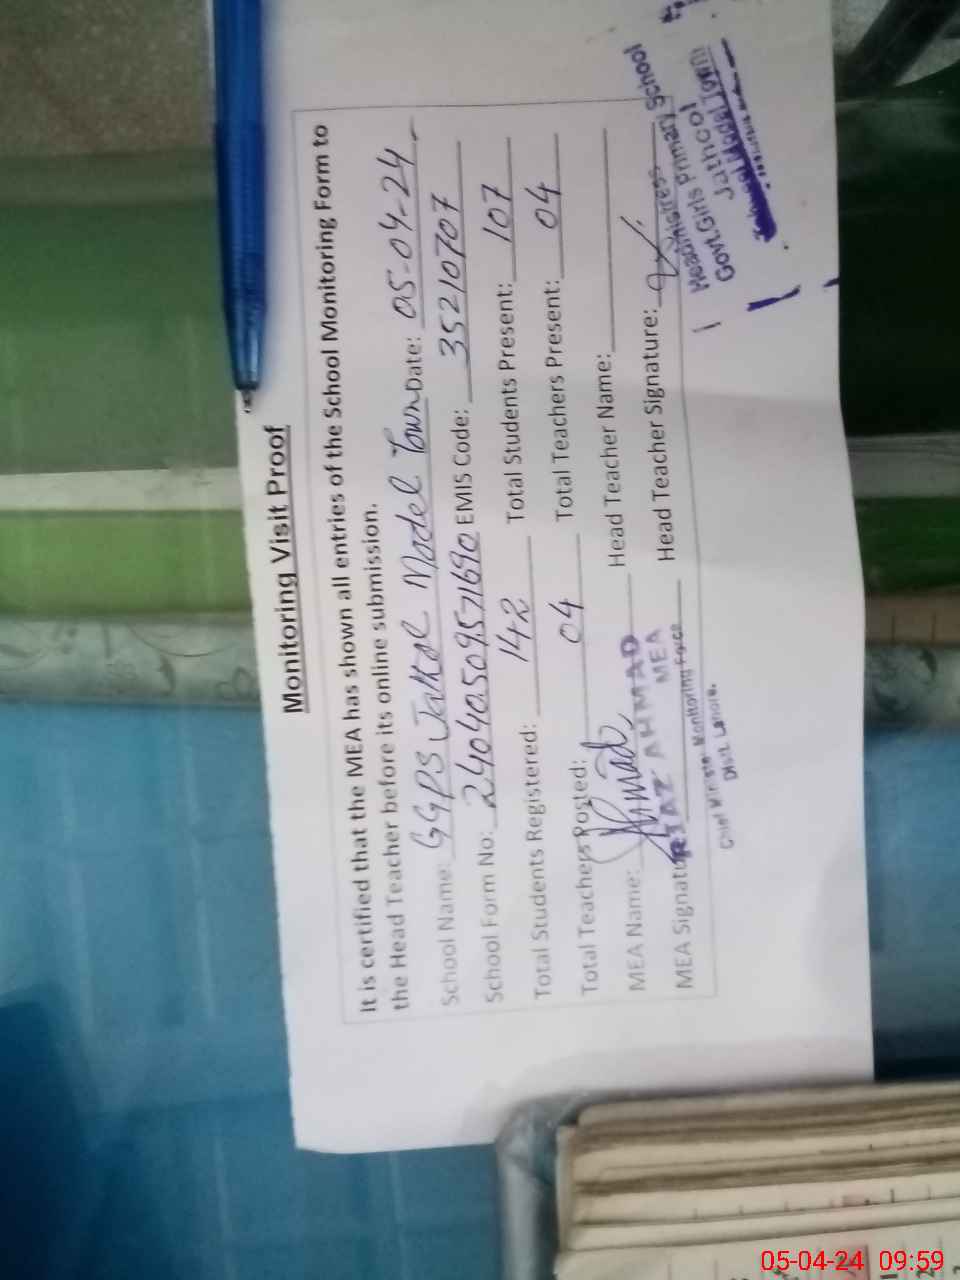 Monitoring Visit Proof
It is certified that the MEA has shown all entries of the School Monitoring Form to
the Head Teacher before its online submission.
School Name: GGPS Jathol Model Town Date: 05-04-24
School Form No: 24040509571690 EMIS Code: 35210707
Total Students Registered: 142 Total Students Present: 107
Total Teachers Posted: 04 Total Teachers Present: 04
MEA Name: Ahmad Head Teacher Name:
RIAZ AHMAD
MEA
MEA Signature Head Teacher Signature:
Chief Minister Monitoring Force
Distt. Lahore.
Headmistress
Govt. Girls Primary School
Jathool
Model Town
05-04-24 09:59